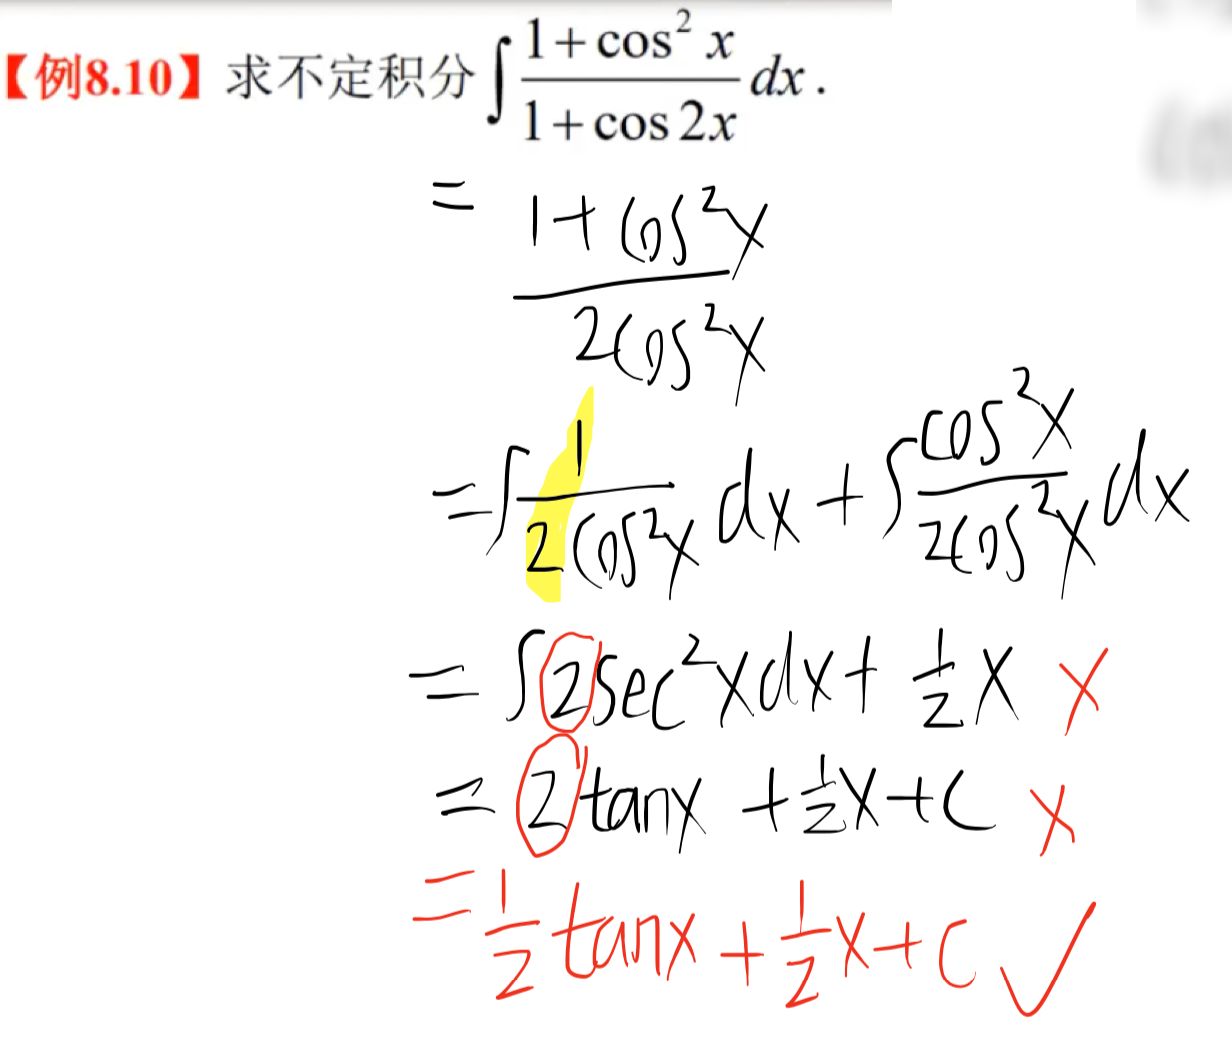 【例8.10】求不定积分∫(1+cos²x)/(1+cos2x) dx.
= (1+cos²x)/(2cos²x)
=∫1/(2cos²x) dx+∫cos²x/(2cos²x) dx
= ∫2sec²xdx+ 1/2 x ×
= 2tanx + 1/2 x+C ×
= 1/2 tanx + 1/2 x+C ✓